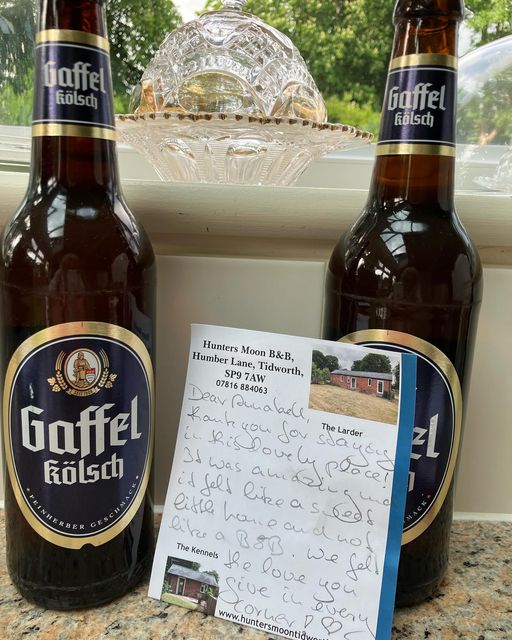 Gaffel
kölsch
Gaffel
kölsch
Gaffel
kölsch
PFEINHERBER GESCHMACK
Hunters Moon B&B,
Humber Lane, Tidworth,
SP9 7AW
07816 884063
The Larder
Dear Annabell,
thank you for staying
in this lovely place!
It was amazing and
it felt like a
little home and not
like a B&B. We felt
the love you
give in every
corner! ♡
The Kennels
www.huntersmoontidwort